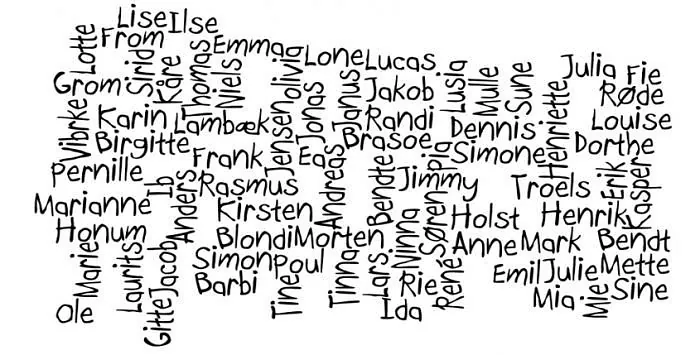 Lise
Ilse
Lotte
From
Emma
olivia
Lone
Lucas
Sirid
Kåre
Thomas
Niels
Janus
Lusia
Mulle
Sune
Julia
Fie
Grom
Jakob
Røde
Vibrke
Karin
Lambæk
Jensen
Jonas
Randi
Dennis
Henriette
Louise
Birgitte
Brasoe
Dorthe
Pernille
Frank
Eas
Andreas
Pia
Simone
Ib
Anders
Rasmus
Bendte
Jimmy
Troels
Erik
Kasper
Marianne
Kirsten
Søren
Holst
Henrik
Honum
Blondi
Morten
Ninna
Anne
Mark
Bendt
Marie
Laurits
Jacob
Simon
Poul
Tinna
Lars
René
Emil
Julie
Mette
Gitte
Barbi
Tine
Rie
Mia
Mie
Sine
Ole
Ida